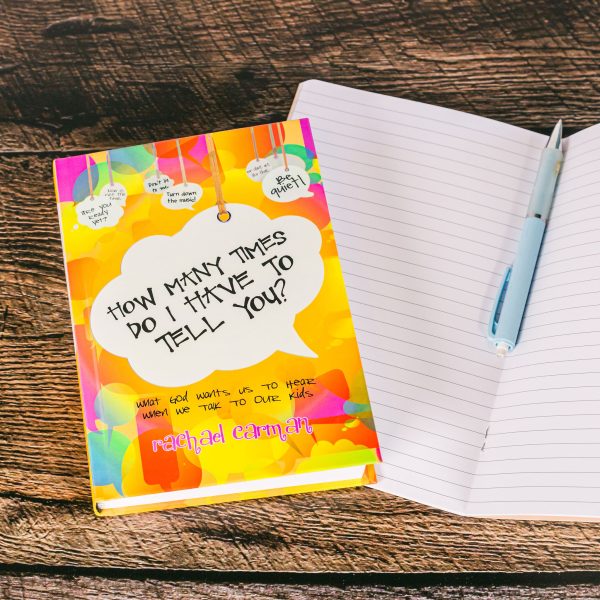 Are you
Ready
yet?
Don't be
so rude.
Turn down
the music!
Be
quiet!
HOW MANY TIMES
DO I HAVE TO
TELL YOU?
what God wants us to Hear
when we Talk to our Kids
rachael carman